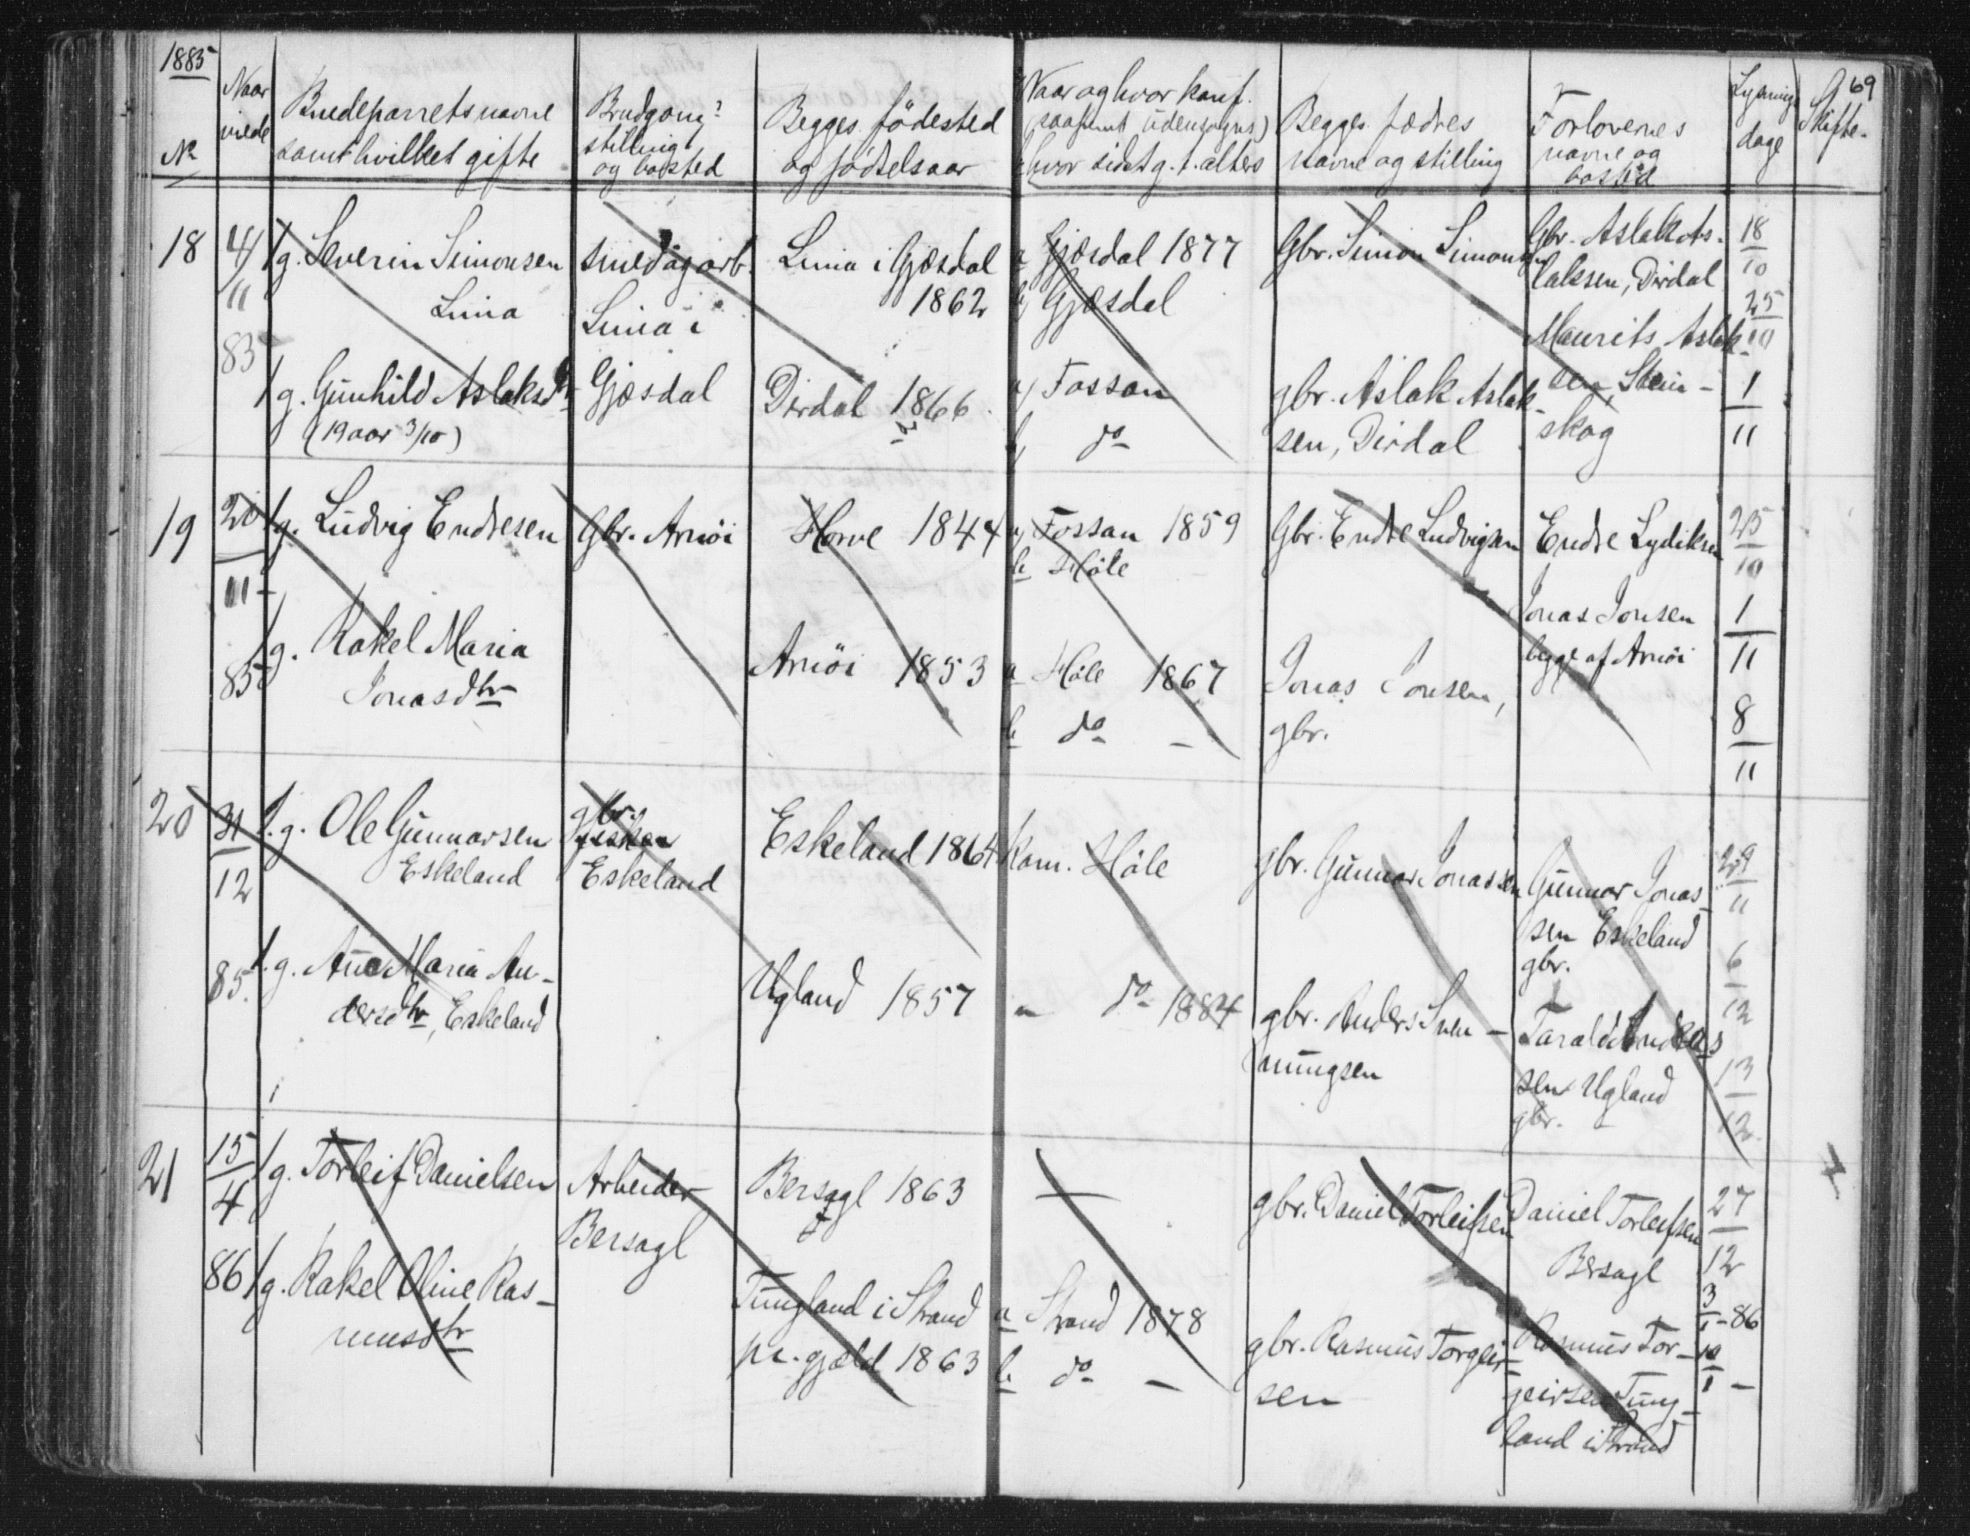 1885
69
No
Naar viede
Brudeparrets navne
samt hvilket gifte
Brudgoms
stilling
og bosted
Begges fødested
og fødselsaar
Naar og hvor konf.
(saafremt udensogns)
hvor sidst g. t. alters
Begges fædres
navne og stilling
Forlovernes
navne og
bosted
Lysnings
dage
Skifte-
18
4/11 85
1 g. Severin Simonsen
Lima
smed og arb.
Lima i
Gjæsdal
Lima i Gjæsdal
1862
a Gjæsdal 1877
b Gjæsdal
Gbr. Simon Simonsen
Gbr. Aslak As-
laksen, Dirdal
Maurits Aslak-
sen, Stein-
skog
18/10
25/10
1/11
1 g. Gunhild Aslaksdtr
(19 aar 3/10)
Dirdal 1866
a) Fossan
b) do
gbr. Aslak Aslak-
sen, Dirdal
19
20/11 85
1 g. Ludvig Endresen
Gbr. Arnøi
Horve 1844
a) Fossan 1859
b Høle
Gbr. Endre Ludvigsen
Endre Lydiksen
Jonas Jonsen
begge af Arnøi
25/10
1/11
8/11
1 g. Rakel Maria
Jonasdtr
Arnøi 1853
a Høle 1867
b do -
Jonas Jonsen,
gbr.
20
31/12 85.
1. g. Ole Gunnarsen
Eskeland
gbr.
Eskeland
Eskeland 1864
Kom. Høle
gbr. Gunnar Jonassen
Gunnar Jonas-
sen Eskeland
gbr.
29/11
6/12
13/12
1. g. Ane Maria An-
dersdtr, Eskeland
Ugland 1857
" do 1884
gbr. Anders Sven-
nungsen
Tarald Andreas
sen Ugland
gbr.
21
15/4 86
1 g. Torleif Danielsen
Arbeider
Bersagl
Bersagl 1863
—
gbr. Daniel Torleifsen
Daniel Torleifsen
Bersagl
27/12
3/1 - 86
10/1 -
1 g. Rakel Oline Ras-
musdtr
Tungland i Strand
pr. gjæld 1863
a Strand 1878
b do -
gbr. Rasmus Torgeir-
sen
Rasmus Tor-
geirsen Tung-
land i Strand